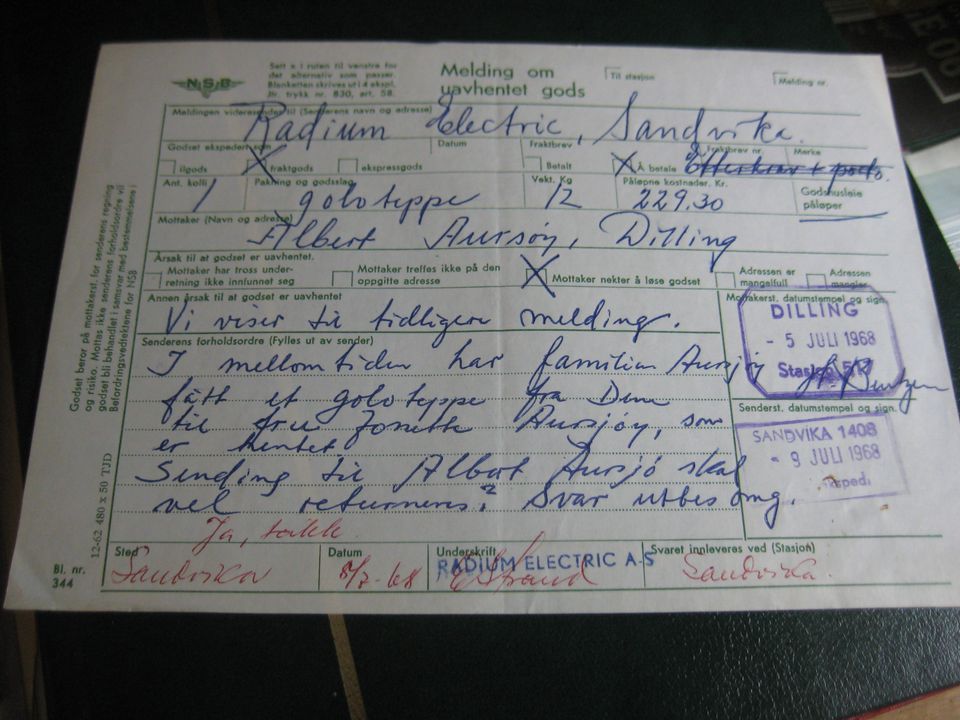 NSB
Sett x i ruten til venstre for
det alternativ som passer.
Blanketten skrives ut i 4 ekspl.
Jfr. trykk nr. 830, art. 58.
Melding om
uavhentet gods
Til stasjon
Melding nr.
Meldingen videresendes til (Senderens navn og adresse)
Radium Electric, Sandvika.
Godset ekspedert som
Datum
Fraktbrev
Fraktbrev nr.
Merke
ilgods
fraktgods
ekspressgods
Betalt
Å betale
Etterkrav + porto.
Ant. kolli
Pakning og godsslag
Vekt. Kg
Påløpne kostnader. Kr.
Godshusleie
påløper
1 golvteppe 12 229.30
Mottaker (Navn og adresse)
Albert Aursøy, Dilling
Årsak til at godset er uavhentet.
Mottaker har tross under-
retning ikke innfunnet seg
Mottaker treffes ikke på den
oppgitte adresse
Mottaker nekter å løse godset
Adressen er
mangelfull
Adressen
mangler
Annen årsak til at godset er uavhentet
Vi viser til tidligere melding.
Mottakerst. datumstempel og sign.
DILLING
- 5 JULI 1968
Stasjon 517
Senderens forholdsordre (Fylles ut av sender)
I mellomtiden har familien Aursjøy
fått et golvteppe fra Dem
til fru Jonette Aursjøy, som
er hentet
Sending til Albert Aursjö skal
vel returneres? Svar utbes omg.
Ja, takk
Senderst. datumstempel og sign.
SANDVIKA 1408
- 9 JULI 1968
Sted
Datum
Underskrift
Svaret innleveres ved (Stasjon)
Sandvika
8/7-68
RADIUM ELECTRIC A-S
Sandvika.
Bl. nr.
344
12-62 480 x 50 TJD
Godset beror på mottakerst. for senderens regning
og risiko. Mottas ikke senderens forholdsordre vil
godset bli behandlet i samsvar med bestemmelsene i
Befordringsvedtektene for NSB